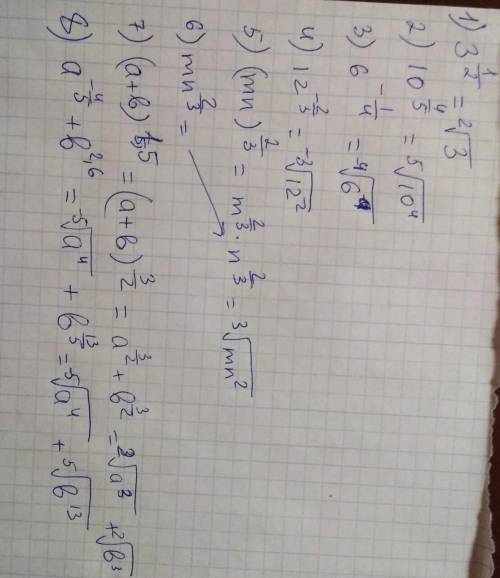 1) 3^{\frac{1}{2}} = \sqrt[2]{3}
2) 10^{\frac{4}{5}} = \sqrt[5]{10^4}
3) 6^{-\frac{1}{4}} = \sqrt[4]{6}
4) 12^{-\frac{2}{3}} = \sqrt[-3]{12^2}
5) (mn)^{\frac{2}{3}} = m^{\frac{2}{3}} · n^{\frac{2}{3}} = \sqrt[3]{mn^2}
6) mn^{\frac{2}{3}} =
7) (a+b)^{1,5} = (a+b)^{\frac{3}{2}} = a^{\frac{3}{2}} + b^{\frac{3}{2}} = \sqrt[2]{a^3} + \sqrt[2]{b^3}
8) a^{-\frac{4}{5}} + b^{2,6} = \sqrt[-5]{a^4} + b^{\frac{13}{5}} = \sqrt[5]{a^4} + \sqrt[5]{b^{13}}